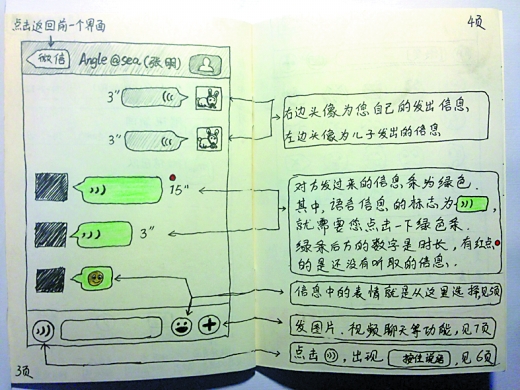 点击返回前一个界面
微信
Angle@sea(张明)
3"
3"
15"
3"
3页
4页
右边头像为您自己的发出信息
左边头像为儿子发出的信息
对方发过来的信息条为绿色.
其中,语音信息的标志为
就需要您点击一下绿色条.
绿条后方的数字是时长,有红点
的是还没有听取的信息.
信息中的表情就是从这里选择见5页
发图片.视频聊天等功能,见7页
点击 ,出现 按住说话 ,见6页